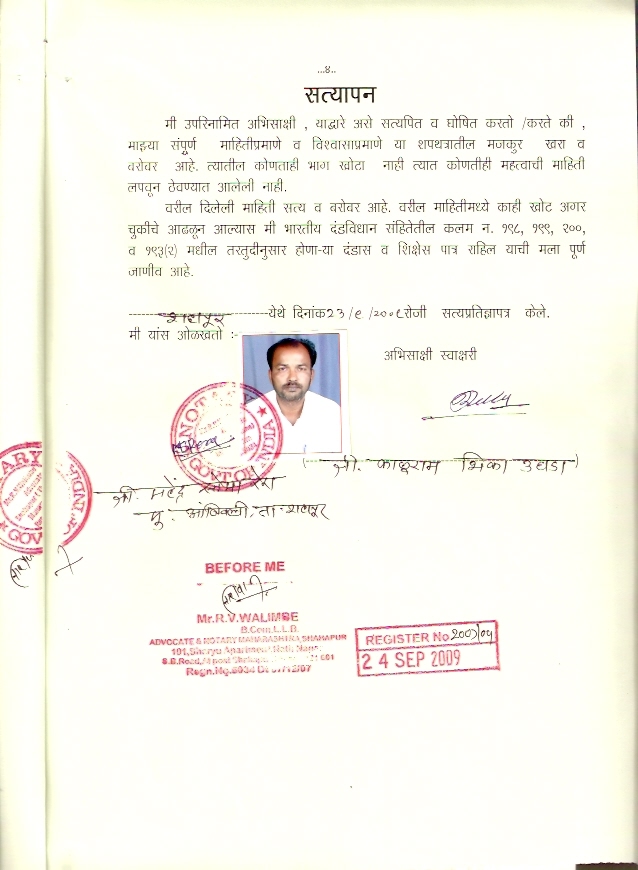 ...४..
सत्यापन
मी उपरिनामित अभिसाक्षी , याद्वारे असे सत्यपित व घोषित करतो /करते की ,
माझ्या संपूर्ण माहितीप्रमाणे व विश्वासाप्रमाणे या शपथत्रातील मजकुर खरा व
बरोवर आहे. त्यातील कोणताही भाग खोटा नाही त्यात कोणतीही महत्वाची माहिती
लपवुन ठेवण्यात आलेली नाही.
वरील दिलेली माहिती सत्य व बरोवर आहे. वरील माहितीमध्ये काही खोट अगर
चुकीचे आढळून आल्यास मी भारतीय दंडविधान संहितेतील कलम न. १९८, १९९, २००,
व १९३(२) मधील तरतुदीनुसार होणा-या दंडास व शिक्षेस पात्र राहिल याची मला पूर्ण
जाणीव आहे.
शहापूर येथे दिनांक २३/९/२००९ रोजी सत्यप्रतिज्ञापत्र केले.
मी यांस ओळखतो :-
अभिसाक्षी स्वाक्षरी
NOTARY
GOVT OF INDIA
(श्री. काळूराम भिका उघडा)
श्री. महेंद्र
मु. आंबिवली, ता-शहापूर
BEFORE ME
Mr.R.V.WALIMBE
B.Com.L.L.B.
ADVOCATE & NOTARY MAHARASHTRA, SHAHAPUR
101, Sharyu Apartment
S.B.Road,
Regn.No.6934 Dt 07/12/07
REGISTER No 2007/09
24 SEP 2009